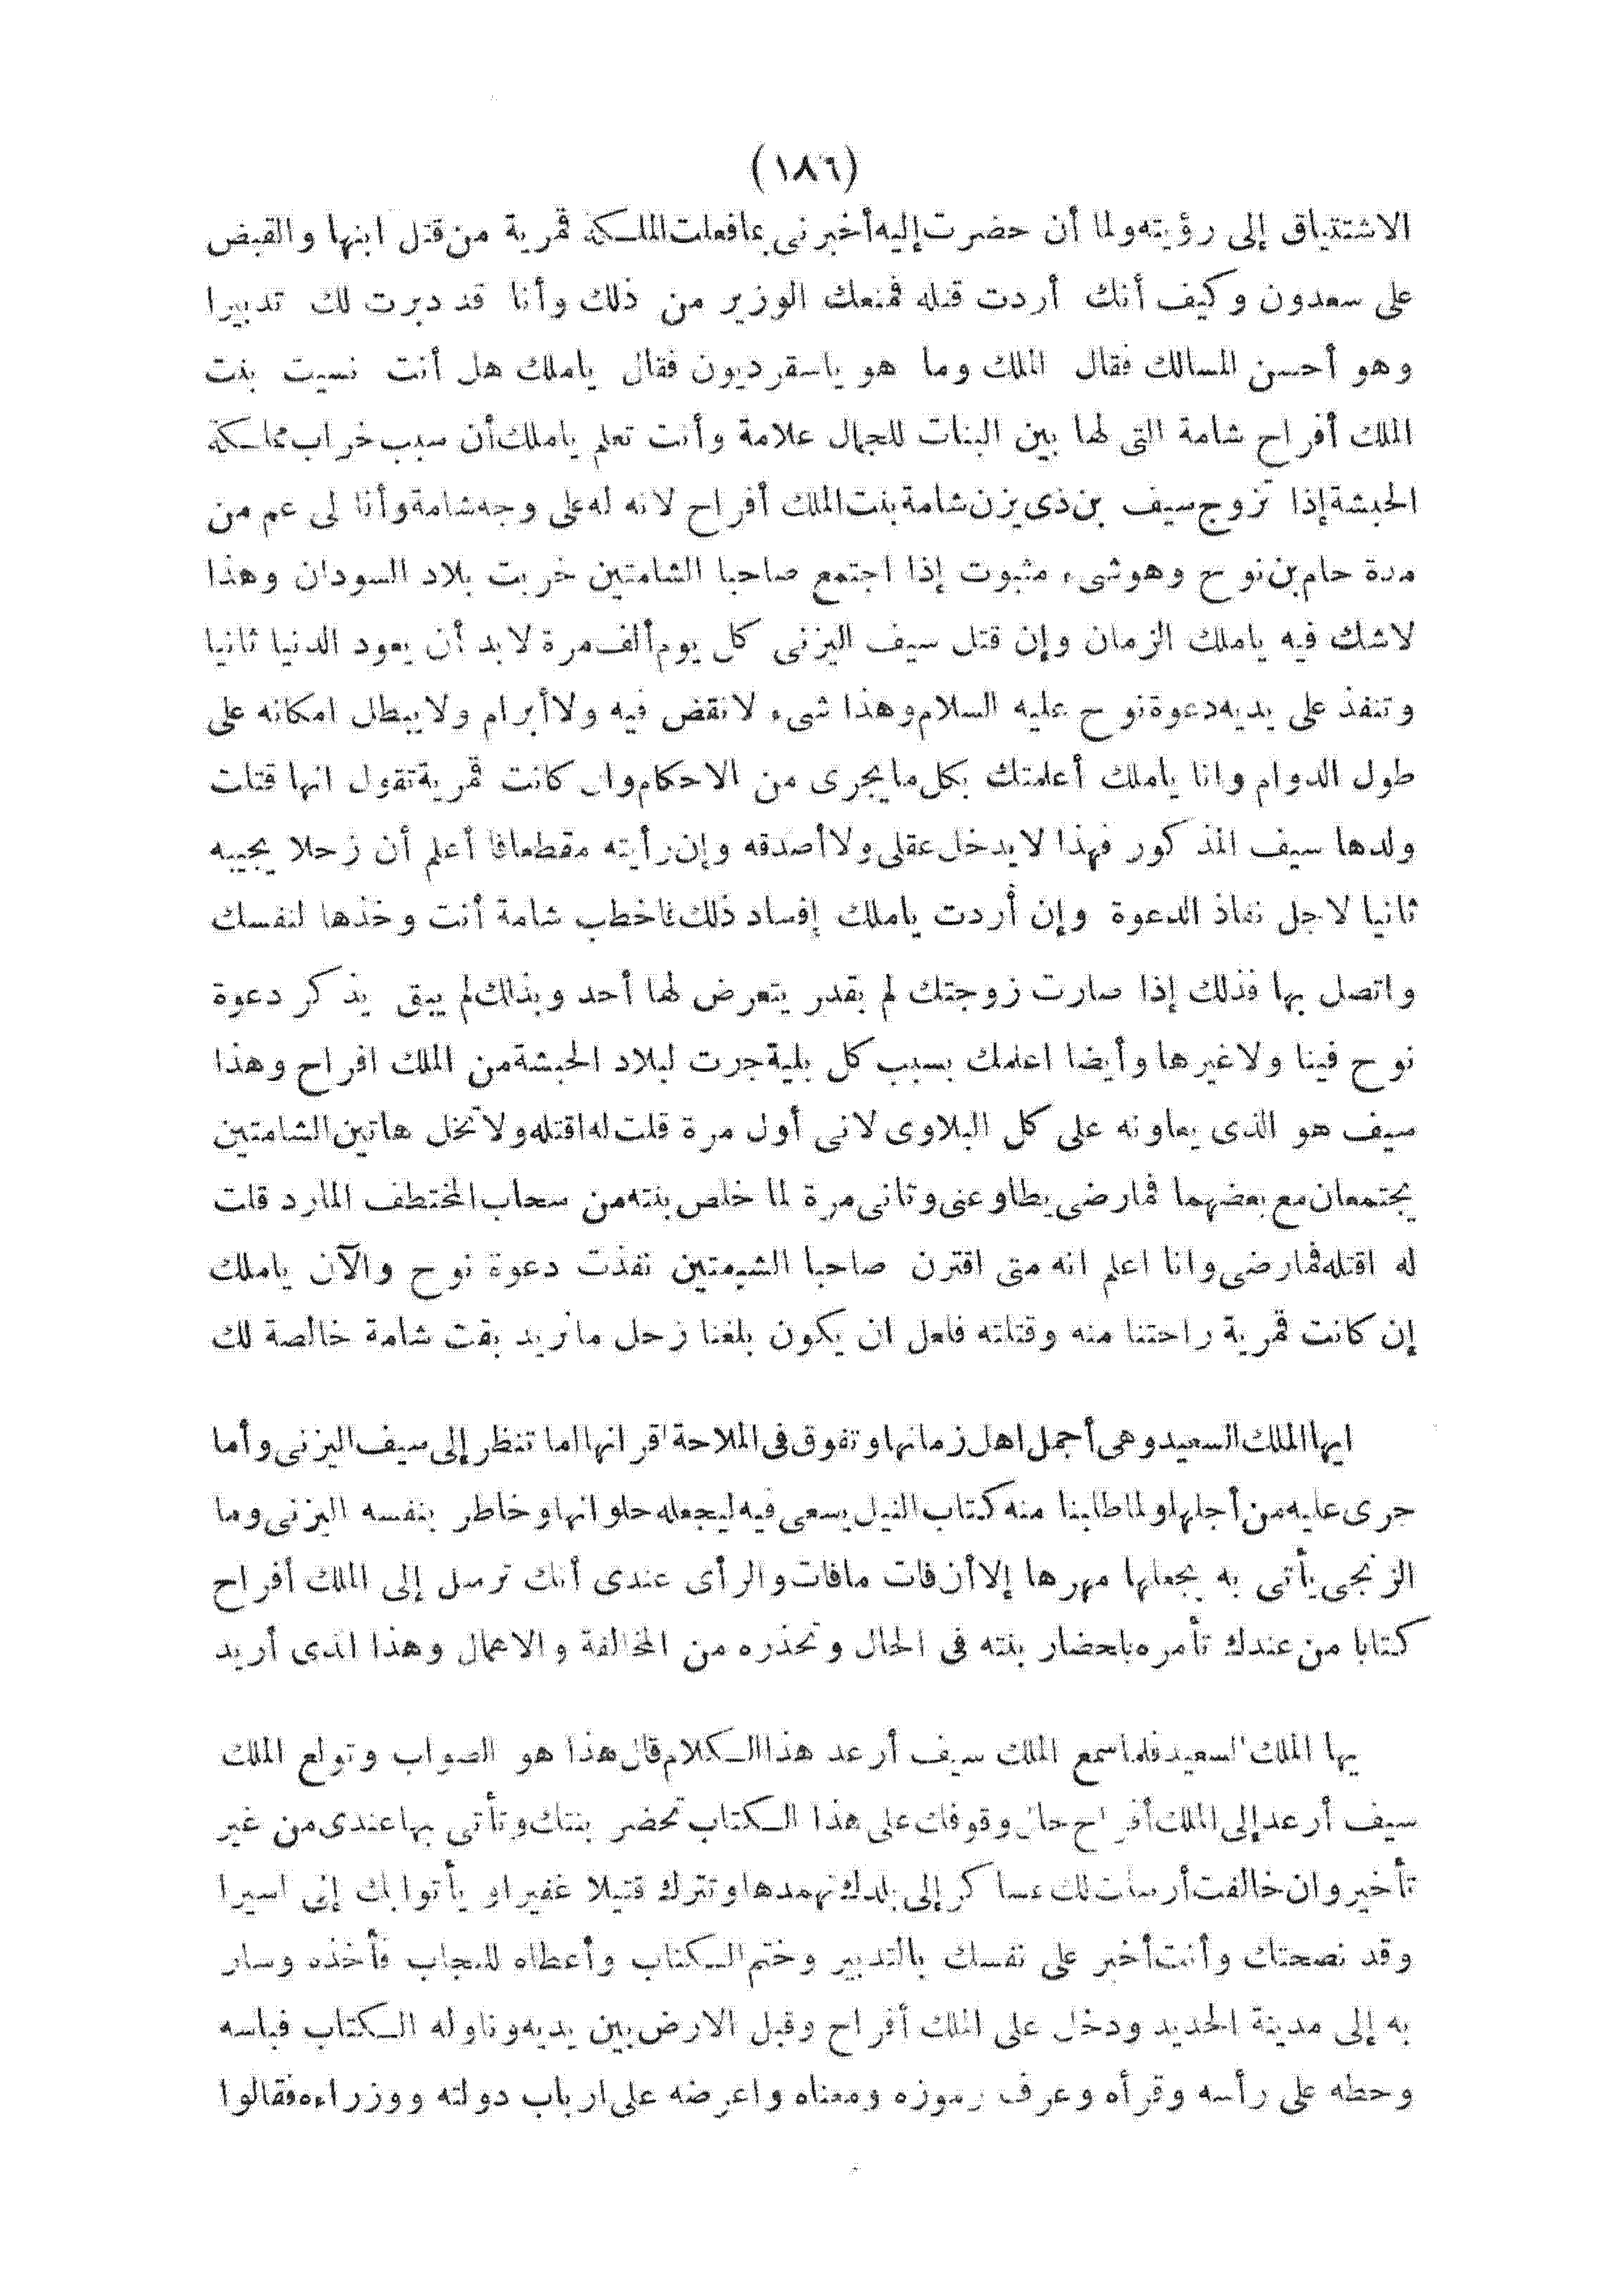 (١٨٦)
الاشتياق إلى رؤيته ولما أن حضرت إليه أخبرنى بما فعلت الملكة قمرية من قتل ابنها والقبض
على سعدون وكيف أنك أردت قتله فمنعك الوزير من ذلك وأنا قد دبرت لك تدبيرا
وهو أحسن المسالك فقال الملك وما هو ياسقرديون فقال ياملك هل أنت نسيت بنت
الملك أفراح شامة التى لها بين البنات للجمال علامة وأنت تعلم ياملك أن سبب خراب مملكة
الحبشة إذا تزوج سيف بن ذى يزن شامة بنت الملك أفراح لانه له على وجه شامة وأنا لى عم من
مدة حام بن نوح وهو شىء مثبوت إذا اجتمع صاحبا الشامتين خربت بلاد السودان وهذا
لاشك فيه ياملك الزمان وإن قتل سيف اليزنى كل يوم ألف مرة لابد أن يعود الدنيا ثانيا
وتنفذ على يديه دعوة نوح عليه السلام وهذا شىء لانقض فيه ولا أبرام ولا يبطل امكانه على
طول الدوام وانا ياملك أعلمتك بكل ما يجرى من الاحكام وان كانت قمرية تقول انها قتلت
ولدها سيف المذكور فهذا لايدخل عقلى ولا أصدقه وإن رأيته مقطعا فا أعلم أن زحلا يحييه
ثانيا لاجل نفاذ الدعوة وإن أردت ياملك إفساد ذلك فاخطب شامة أنت وخذها لنفسك
واتصل بها فذلك إذا صارت زوجتك لم يقدر يتعرض لها أحد وبذلك لم يبق يذكر دعوة
نوح فينا ولا غيرها وأيضا اعلمك بسبب كل بلية جرت لبلاد الحبشة من الملك افراح وهذا
سيف هو الذى يعاونه على كل البلاوى لانى أول مرة قلت له اقتله ولا تخل هاتين الشامتين
يجتمعان مع بعضهما فمارضى يطاوعنى وثانى مرة لما خلص بنته من سحاب المختطف المارد قلت
له اقتله فمارضى وانا اعلم انه متى اقترن صاحبا الشيمتين نفذت دعوة نوح والآن ياملك
إن كانت قمرية راحتنا منه وقتلته فاعل ان يكون بلغنا زحل مانريد بقت شامة خالصة لك
ايها الملك السعيد وهى أجمل اهل زمانها وتفوق فى الملاحة اقرانها اما تنظر إلى سيف اليزنى وأما
جرى عليه من أجلها ولما طلبنا منه كتاب النيل يسعى فيه ليجعله حلوانها وخاطر بنفسه اليزنى وما
الزنجى يأتى به يجعلها مهرها إلا أن فات مافات والرأى عندى أنك ترسل إلى الملك أفراح
كتابا من عندك تأمره باحضار بنته فى الحال وتحذره من المخالفة والاعمال وهذا الذى أريد
يها الملك السعيد فلما سمع الملك سيف أرعد هذا الكلام قال هذا هو الصواب وتولع الملك
سيف أرعد إلى الملك أفراح حال وقوفك على هذا الكتاب تحضر بنتك وتأتى بها عندى من غير
تأخير وان خالفت أرسلت لك عساكر إلى بلدك تهمدها وتترك قتيلا غفيرا و يأتوا بك إنى اسيرا
وقد نصحتك وأنت أخبر على نفسك بالتدبير وختم الكتاب وأعطاه للنجاب فأخذه وسار
به إلى مدينة الحديد ودخل على الملك أفراح وقبل الارض بين يديه وناوله الكتاب فباسه
وحطه على رأسه وقرأه وعرف رموزه ومعناه واعرضه على ارباب دولته ووزراءه فقالوا